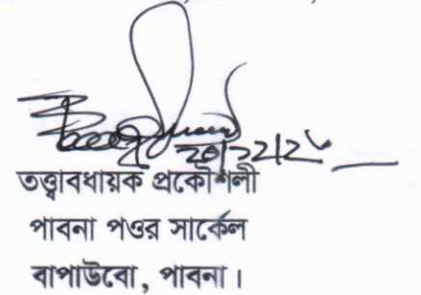 তত্ত্বাবধায়ক প্রকৌশলী
পাবনা পওর সার্কেল
বাপাউবো, পাবনা।